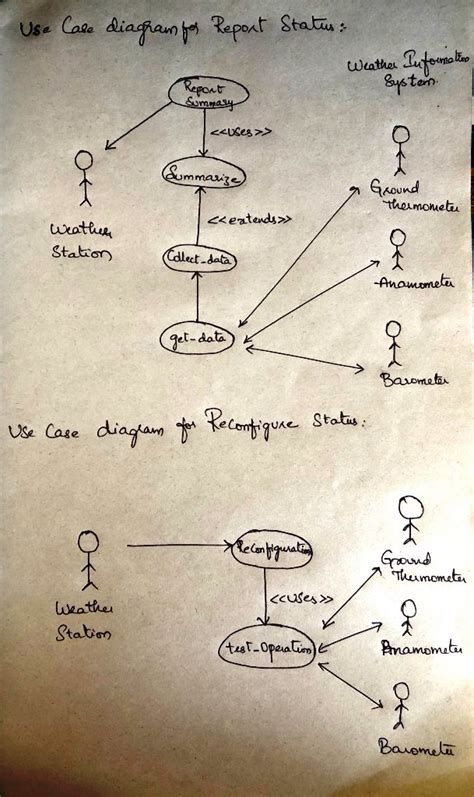 Use Case diagram for Report Status:-
Weather Information
System
Report
Summary
<<uses>>
Summarize
Ground
Thermometer
Weather
Station
<<extends>>
Collect-data
Anamometer
get-data
Barometer
Use Case diagram for Reconfigure Status:
Reconfiguration
Ground
Thermometer
Weather
Station
<<uses>>
test-Operation
Anamometer
Barometer